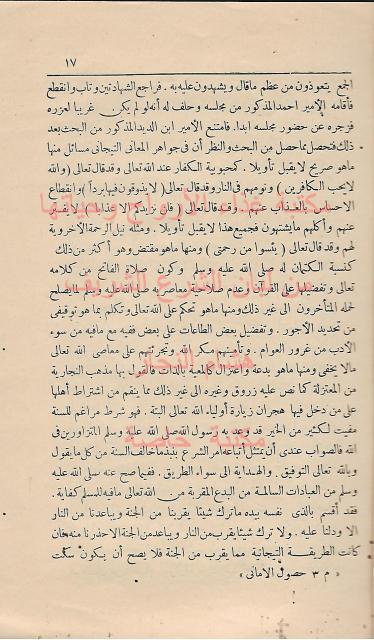 ١٧
الجمع يتعوذون من عظم ماقال ويشهدون عليه به . فراجع الشهادتين وتاب وانقطع
فأقامه الأمير احمد المذكور من مجلسه وحلف له أنه لو لم يكن غريبا لعزره
فزجره عن حضور مجلسه ابدا. فامتنع الأمير ابن الديد المذكور من البحث بعد
ذلك فتحصل بماحصل من البحث والنظر أن فى جواهر المعانى التيجانى مسائل منها
ماهو صريح لايقبل تأويلا . كمحبوبية الكفار عند الله تعالى وقد قال تعالى (والله
لايحب الكافرين ) ونومهم فى النار وقد قال تعالى ( لا يذوقون فيها بردا ) وانقطاع
الاحساس بالعذاب عنهم . وقد قال تعالى ( فلن نزيدكم الا عذابا ) لا يفتر
عنهم وأكلهم مايشتهون فجميع هذا لايقبل تأويلا . ومثله نيل الرحمة الأخروية
لهم وقد قال تعالى ( يئسوا من رحمتى ) ومنها ماهو مقتض وهو أكثر من ذلك
كنسبة الكتمان له صلى الله عليه وسلم وكون صلاة الفاتح من كلامه
تعالى وتفضيلها على القرآن وعدم صلاحية معاصريه صلى الله عليه وسلم لما يصلح
لحمله المتأخرون الى غير ذلك ومنها ماهو تحكم على الله تعالى وتكلم بما هو توقيفى
من تحديد الأجور . وتفضيل بعض الطاعات على بعض ففيه مع مافيه من سوء
الأدب من غرور العوام . وتأمينهم مكر الله وتجرئتهم على معاصى الله تعالى
مالا يخفى ومنها ماهو بدعة واعتزال كاملعية بالذات فالقول بها مذهب النجارية
من المعتزلة كما نص عليه زروق وغيره الى غير ذلك مما ينقم من اشتراط أهلها
على من دخل فيها هجران زيارة أولياء الله تعالى البتة . فهو شرط مراغم للسنة
مفيت لكثير من الخير قد وعد به رسول الله صلى الله عليه وسلم المتزاورين فى
الله فالصواب عندى أن يمتثل أتباعه أمر الشرع بنبذ ماخالف السنة من كل ما يقول
وبالله تعالى التوفيق . والهداية الى سواء الطريق . ففيما صح عنه صلى الله عليه
وسلم من العبادات السالمة من البدع المقربة من الله تعالى مافيه للمسلم كفاية .
فقد أقسم بالذى نفسه بيده ماترك شيئا يقربنا من الجنة ويباعدنا من النار
الا ودلنا عليه . ولا ترك شيئا يقرب من النار ويباعد من الجنة الا حذرنا منه فان
كانت الطريقة التيجانية مما يقرب من الجنة فلا يصح أن يكون سكت
« م ٣ حصول الأمانى »
مكتبة
خاصة